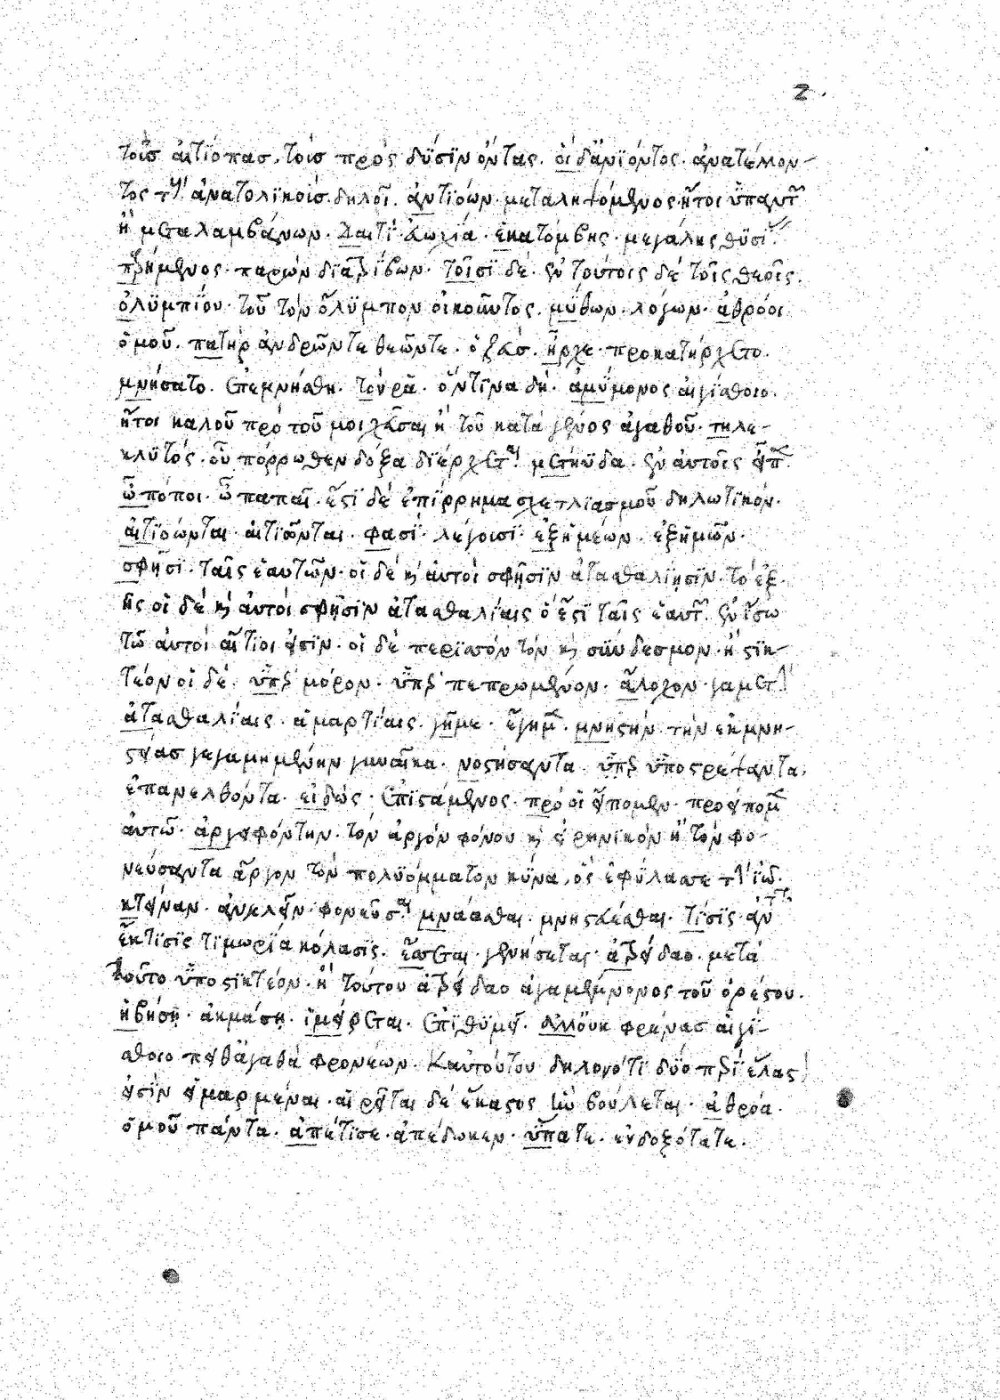 2.
τοῖσ αἰτίοπασ. τοῖσ πρὸς δύσϊν ὄντας. οἱ δ' ἀνϊόντος. ἀνατέλλον-
τος τοῖ ἀνατολϊκοῖσ. δηλοῖ. ἀντϊόων. μεταληψόμενος ἤτοι ὑπαντῶν
ἢ μεταλαμβάνων. δαιτί. εὐωχία. ἑκατόμβης. μεγάλης θϋσίας.
παρήμενος. παρὼν δϊατρίβων. τοῖσϊ δέ. ἐν τούτοις δέ τοῖς θεοῖς.
ὀλϋμπίου. τοῦ τὸν ὄλϋμπον οἰκοῦντος. μύθων. λόγων. ἀθρόοι
ὁμοῦ. πατὴρ ἀνδρῶντε θεῶντε. ὁ ζεύσ. ἦρχε. προκατήρχετο.
μνήσατο. ἐπεμνήσθη. τόν ρὰ. ὅντϊνα δή. ἀμύμονος αἰγίσθοιο.
ἤτοι καλοῦ πρὸ τοῦ μοιχεῦσαι ἢ τοῦ κατὰ γένος ἀγαθοῦ. τηλε-
κλϋτός. οὗ πόρρωθεν δόξα δϊέρχεται. μετηύδα. ἐν αὐτοῖς εἶπε.
ὢ πόποι. ὢ παπαῖ. ἔςϊ δέ ἐπίρρημα σχετλϊασμοῦ δηλωτϊκόν.
αἰτϊόωνται. αἰτϊῶνται. φασϊ. λέγουσϊ. ἐξ ἡμέων. ἐξ ἡμῶν.
σφῆσϊ. ταῖς ἑαυτῶν. οἱ δέ κ αὐτοὶ σφῆσϊν ἀτασθαλίησϊν. τὸ ἑξ-
ῆς οἱ δέ κ αὐτοὶ σφῆσϊν ἀτασθαλίαις ὅ ἐςϊ ταῖς ἑαυτῶν. ἐν ἴσω
τῶ αὐτοὶ αἴτϊοι εἰσϊν. οἱ δέ περϊσσὸν τὸν κ σύνδεσμον. ἢ ςϊκ-
τέον οἱ δέ. ὑπὲρ μόρον. ὑπὲρ πεπρωμένον. ἄλοχον. γαμετήν
ἀτασθαλίαις. ἁμαρτίαις. γῆμε. ἔγημε. μνηςήν. τὴν ἐκ μνη-
ςείασ γεγαμημένην γυναῖκα. νοςήσαντα. ὑπὲρ ὑποςρέψαντα,
ἐπανελθόντα. εἰδώς. ἐπϊςάμενος. πρό οἱ εἴπομεν. προείπομεν
αὐτῶ. ἀργειφόντην. τὸν ἀργὸν φόνου κ εἰρηνϊκόν ἢ τὸν φο-
νεύσαντα ἄργον τὸν πολϋόμματον κύνα, ὃς ἐφύλασσε τὴν ἰώ.
κτείναν. ἀνελεῖν. φονεῦσαι. μνάασθαι. μνηςεύεσθαι. τίσϊς. ἀντὶ
ἔκτϊσϊς τϊμωρία κόλασϊς. ἔσσεται. γενήσεται. ἀτρείδαο. μετὰ
τοῦτο ὑποςϊκτέον. ἢ τούτου ἀτρείδαο ἀγαμέμνονος τοῦ ὀρέςου.
ἡβήση. ἀκμάση. ἱμείρεται. ἐπϊθϋμεῖ. ἀλλ' οὐκ φρένας αἰγί-
σθοιο πεῖθ' ἀγαθὰ φρονέων. κ αὐτούτου δηλονότϊ δύο
εἰσϊν εἱμαρμέναι. αἱρεῖται δέ ἕκαςος ἣν βούλεται. ἀθρόα.
ὁμοῦ πάντα. ἀπέτϊσε. ἀπέδωκεν. ὕπατε. ἐνδοξότατε.